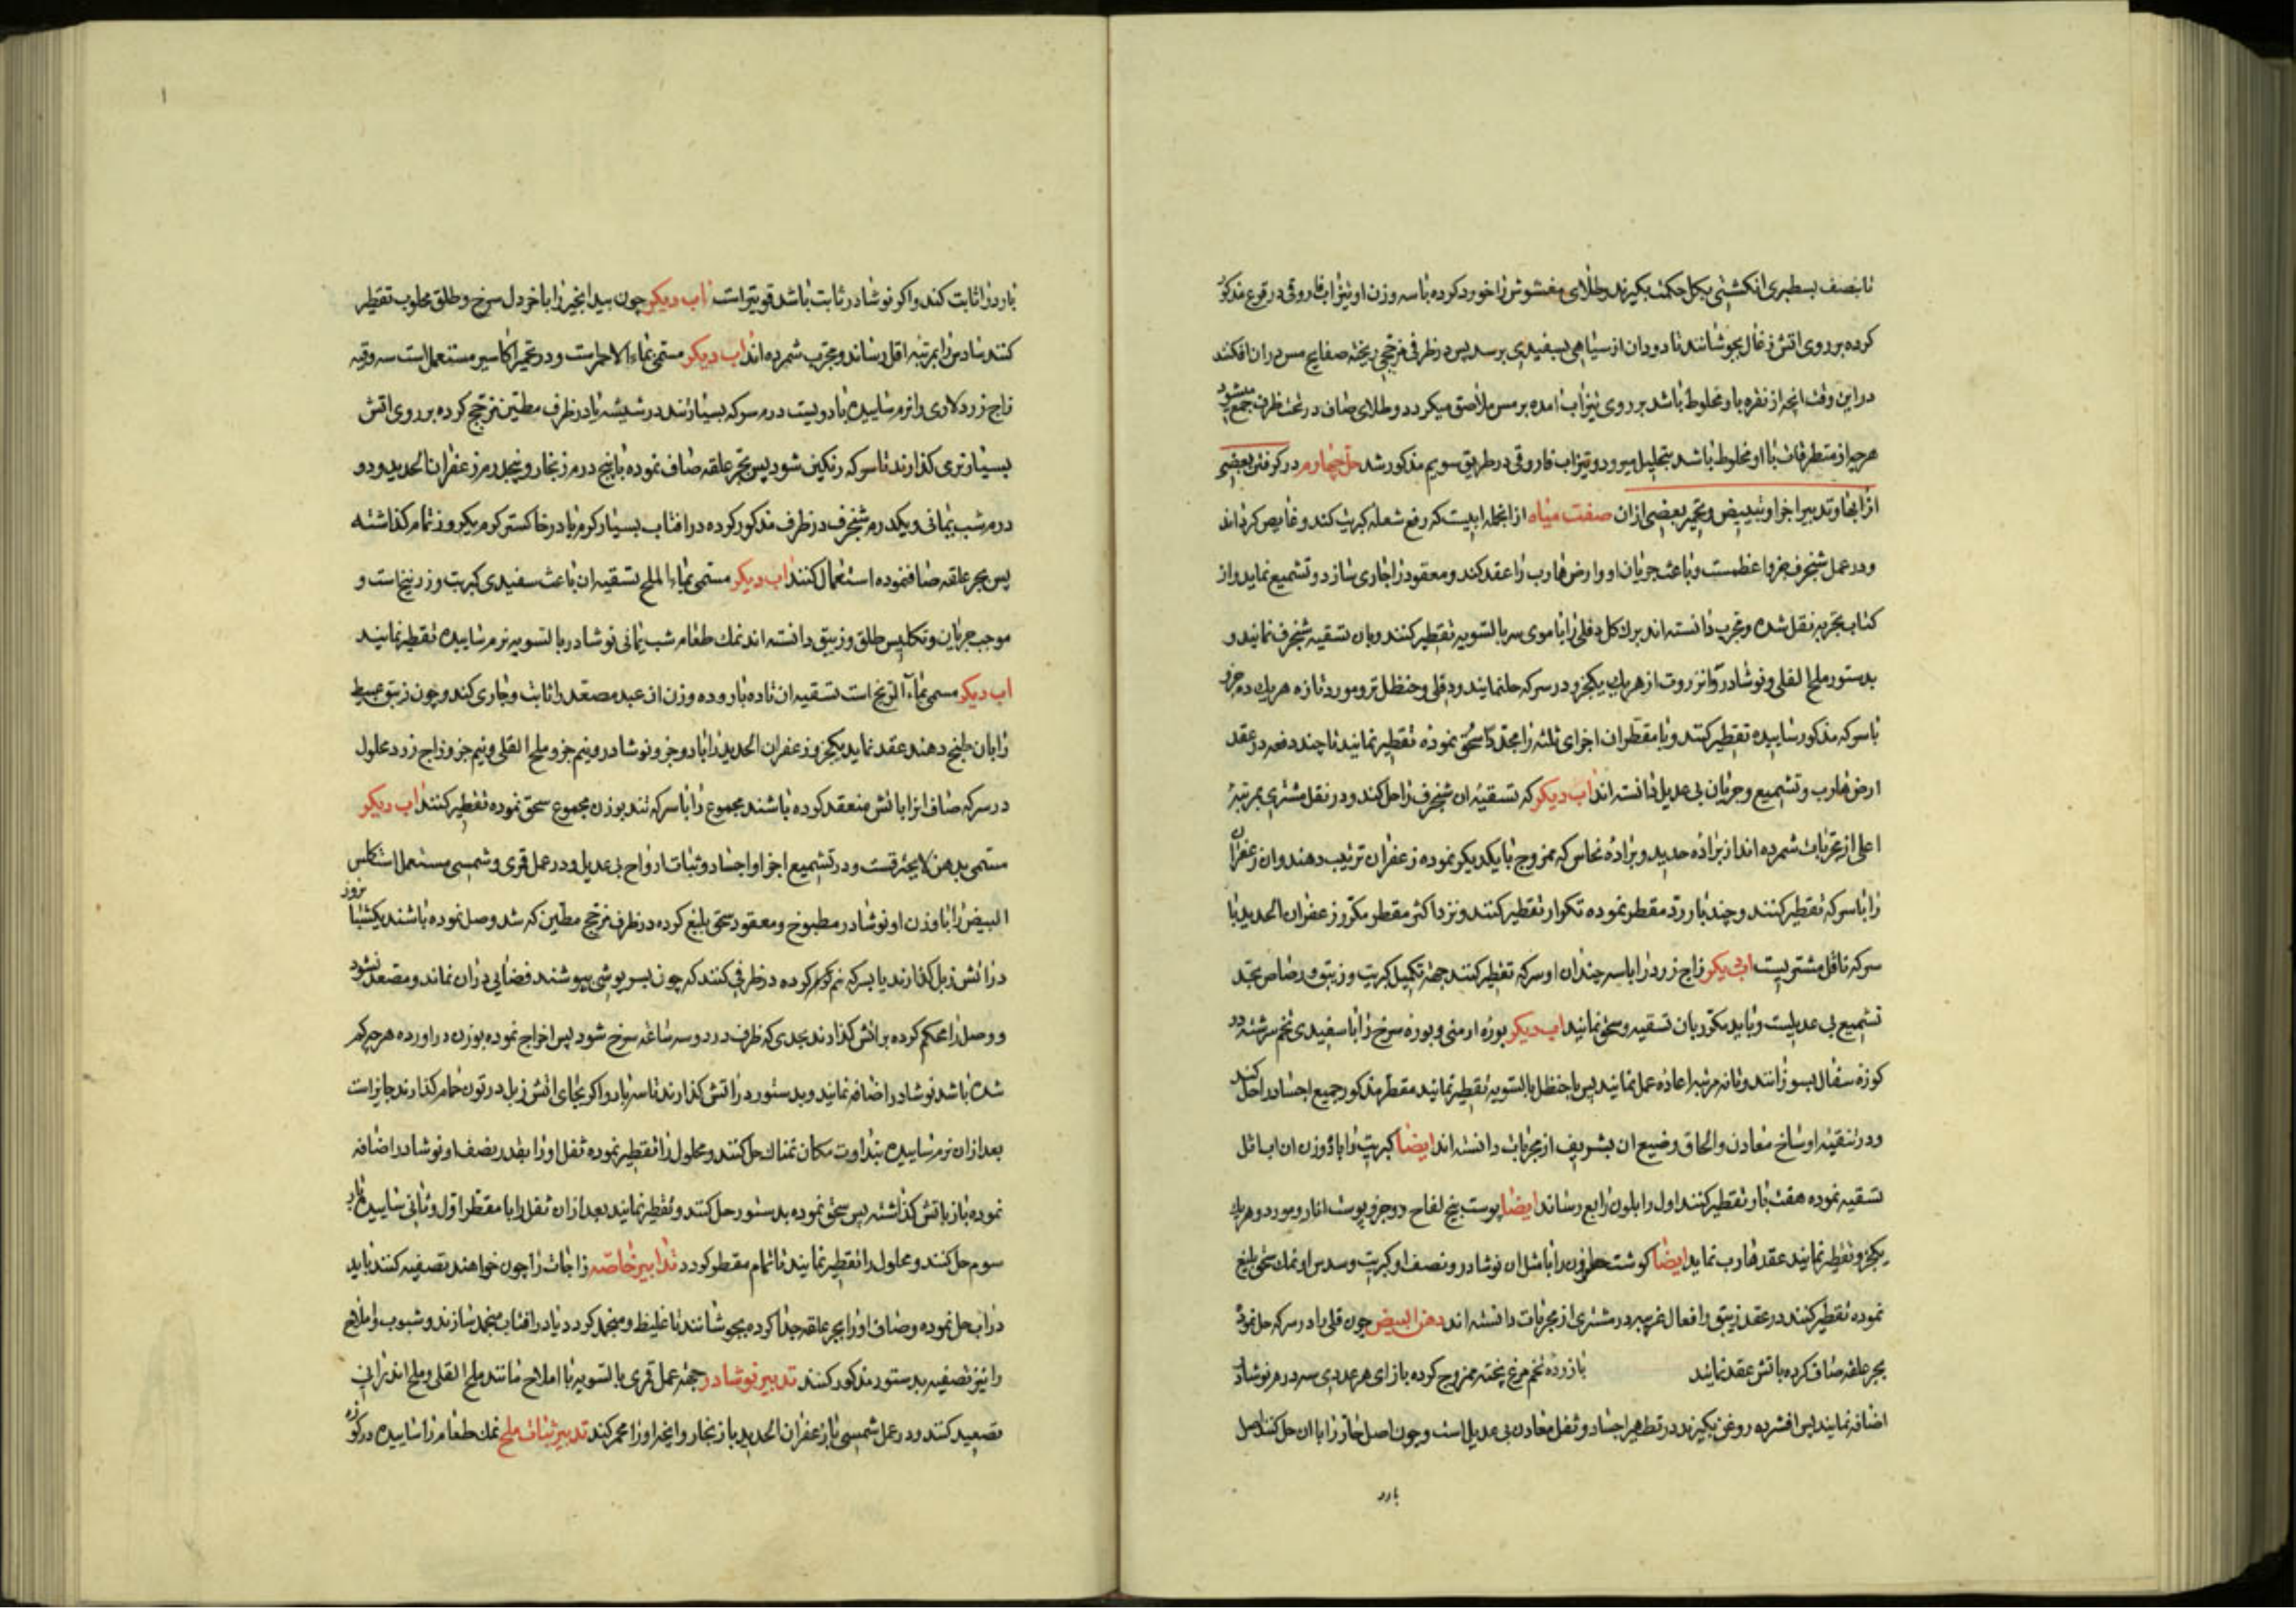 تا بنصف بسطبری انکشتی بکل حکمت بکیرند و طلای مغشوش را خورد کرده با سه وزن او تیزاب فاروقی در قرع مذکور
کرده بر روی اتش زغال بجوشانند تا دود ان از سیاهی بسفیدی برسد پس در ظرف مزججی ریخته صفایح مس در ان افکنند
در این وقت انچه از نقره با و مخلوط باشد بر روی تیزاب امده بر مس ملاصق میکردد و طلای صاف در تحت ظرف جمع میشود
هرچه از متطرقات با او مخلوط باشد بتحلیل میرود و تیزاب فاروقی در طریق سویم مذکور شد حل چهارم در کرفتن بعضی
از ابها و تدبیر اجزا و تبییض و تحمیر بعضی از ان صفت میاه از انجمله ابیست که رفع شعله کبریت کند و غایص کرداند
و در عمل شنجرف جزو اعظمست و باعث جریان او و ارض هارب را عقد کند و معقود را جاری سازد و تشمیع نماید و از
کتاب تجربه نقل شده و مجرب دانسته اند برک کل دفلی را با موی سر بالتسویه تقطیر کنند و بان تسقیه شنجرف نمایند و
بدستور ملح القلی و نوشادر و انزروت از هر یک یکجزو در سرکه حل نمایند و دفلی و حنظل تر و مورد تازه هر یک ده جزو
با سرکه مذکور ساییده تقطیر کنند و با مقطر ان اجزای ثلثه را مجددا سحق نموده تقطیر نمایند تا چند دفعه در عقد
ارض هارب و تشمیع و جریان بی عدیل دانسته اند اب دیکر که تسقیه ان شنجرف را حل کند و در نقل مشتری بمرتبه
اعلی از مجربات شمرده اند از براده حدید و براده نحاس که ممزوج با یکدیکر نموده زعفران ترتیب دهند و ان زعفران
را با سرکه تقطیر کنند و چند بار رد مقطر نموده تکرار تقطیر کنند و نزد اکثر مقطر مکرر زعفران الحدید با
سرکه ناقل مشتریست اب دیکر زاج زرد را با سه چندان او سرکه تقطیر کنند جهة تکمیل کبریت و زیبق و رصاص بجد
تشمیع بی عدیلست و باید مکرر بان تسقیه و سحق نمایند اب دیکر بوره ارمنی و بوره سرخ را با سفیدی تخم سرشته در
کوزه سفال بسوزانند و تا نه مرتبه اعاده عمل نمایند پس با حنظل بالتسویه تقطیر نمایند مقطر مذکور جمیع اجساد را حل کند
و در تنقیه اوساخ معادن و الحاق وضیع ان بشریف از مجربات دانسته اند ایضا کبریت را با دو وزن ان اب اثل
تسقیه نموده هفت بار تقطیر کنند اول را بلون رابع رساند ایضا پوست بیخ لفاح دو جزو پوست انار و مورد و هر یک
یکجزو تقطیر نمایند عقد هارب نماید ایضا کوشت حلزون را با مثل ان نوشادر و نصف او کبریت و سدس او نمک سحق بلیغ
نموده تقطیر کنند در عقد زیبق و افعال غریبه در مشتری از مجربات دانسته اند دهن البیض چون قلی با در سرکه حل نموده
بجر علقه صاف کرده باتش عقد نمایند با زرده تخم مرغ پخته ممزوج کرده بازای هر عددی سه درم نوشادر
اضافه نمایند پس افشرده روغن بکیرند در تطهیر اجساد و ثفل معادن بی عدیل است و چون اصل حار را با ان حل کنند اصل
بارد
بارد را ثابت کند و اکر نوشادر ثابت باشد قویتر است اب دیکر چون بید انجیر را با خردل سرخ و طلق محلوب تقطیر
کنند سادس را بمرتبه اقل رساند و مجرب شمرده اند اب دیکر مسمی بماء الاحمر است و در تحمیر اکاسیر مستعمل است سه وقیه
زاج زرد کلاوی را نرم ساییده با دویست درم سرکه بسیار تند در شیشه یا در ظرف مطین مزجج کرده بر روی اتش
بسیار نرمی کذارند تا سرکه رنکین شود پس بجر علقه صاف نموده با پنج درم زنجار و پنجدرم زعفران الحدید و دو
درم شب یمانی و یکدرم شنجرف در ظرف مذکور کرده در افتاب بسیار کرم یا در خاکستر کرم یکروز تمام کذاشته
پس بجر علقه صاف نموده استعمال کنند اب دیکر مسمی بماء الملح تسقیه ان باعث سفیدی کبریت و زرنیخ است و
موجب جریان و تکلیس طلق و زیبق دانسته اند نمک طعام شب یمانی نوشادر بالتسویه نرم ساییده تقطیر نمایند
اب دیکر مسمی بماء الزرنیخ است تسقیه ان تا ده بار و ده وزن از عبد مصعد را ثابت و جاری کند و چون زیبق عبیط
را بان طبخ دهند عقد نماید یکجزو زعفران الحدید را با دو جزو نوشادر و نیم جزو ملح القلی و نیم جزو زاج زرد محلول
در سرکه صاف انرا باتش منعقد کرده باشند مجموع را با سرکه تند بوزن مجموع سحق نموده تقطیر کنند اب دیکر
مسمی بدهن لا یحترقست و در تشمیع اجزا و اجساد و ثبات ارواح بی عدیل و در عمل قمری و شمسی مستعمل است کلس
البیض را با وزن او نوشادر مطبوخ و معقود سحق بلیغ کرده در ظرف مزجج مطین که شد وصل نموده باشند یکشبانروز
در اتش زبل کذارند یا بسرکه نم کرم کرده در ظرفی کنند که چون بسرپوشی بپوشند فضایی در ان نماند و مصعد نشود
و وصل را محکم کرده بر اتش کذارند بحدی که ظرف در دو سه ساعه سرخ شود پس اخراج نموده بوزن در اورده هرچه کم
شده باشد نوشادر اضافه نمایند و بدستور در اتش کذارند تا سه بار و اکر بجای اتش زبل در تون حمام کذارند جایز است
بعد از ان نرم ساییده بنداوت مکان نمناک حل کنند و محلول را تقطیر نموده ثفل او را بقدر نصف او نوشادر اضافه
نموده باز باتش کذاشته پس سحق نموده بدستور حل کنند و تقطیر نمایند بعد از ان ثفل را با مقطر اول و ثانی ساییده بار
سوم حل کنند و محلول را تقطیر نمایند تا تمام مقطر کردد تدابیر خاصه زاجات را چون خواهند تصفیه کنند باید
در اب حل نموده و صاف او را بجر علقه جدا کرده بجوشانند تا غلیظ و منجمد کردد یا در افتاب منجمد سازند و شبوب و املاح
را نیز تصفیه بدستور مذکور کنند تدبیر نوشادر جهة عمل قمری بالتسویه با املاح مانند ملح القلی و ملح اندرانی
تصعید کنند و در عمل شمسی با زعفران الحدید یا زنجار و انچه او را محمر کند تدبیر ثبات ملح نمک طعام را ساییده در کوزه